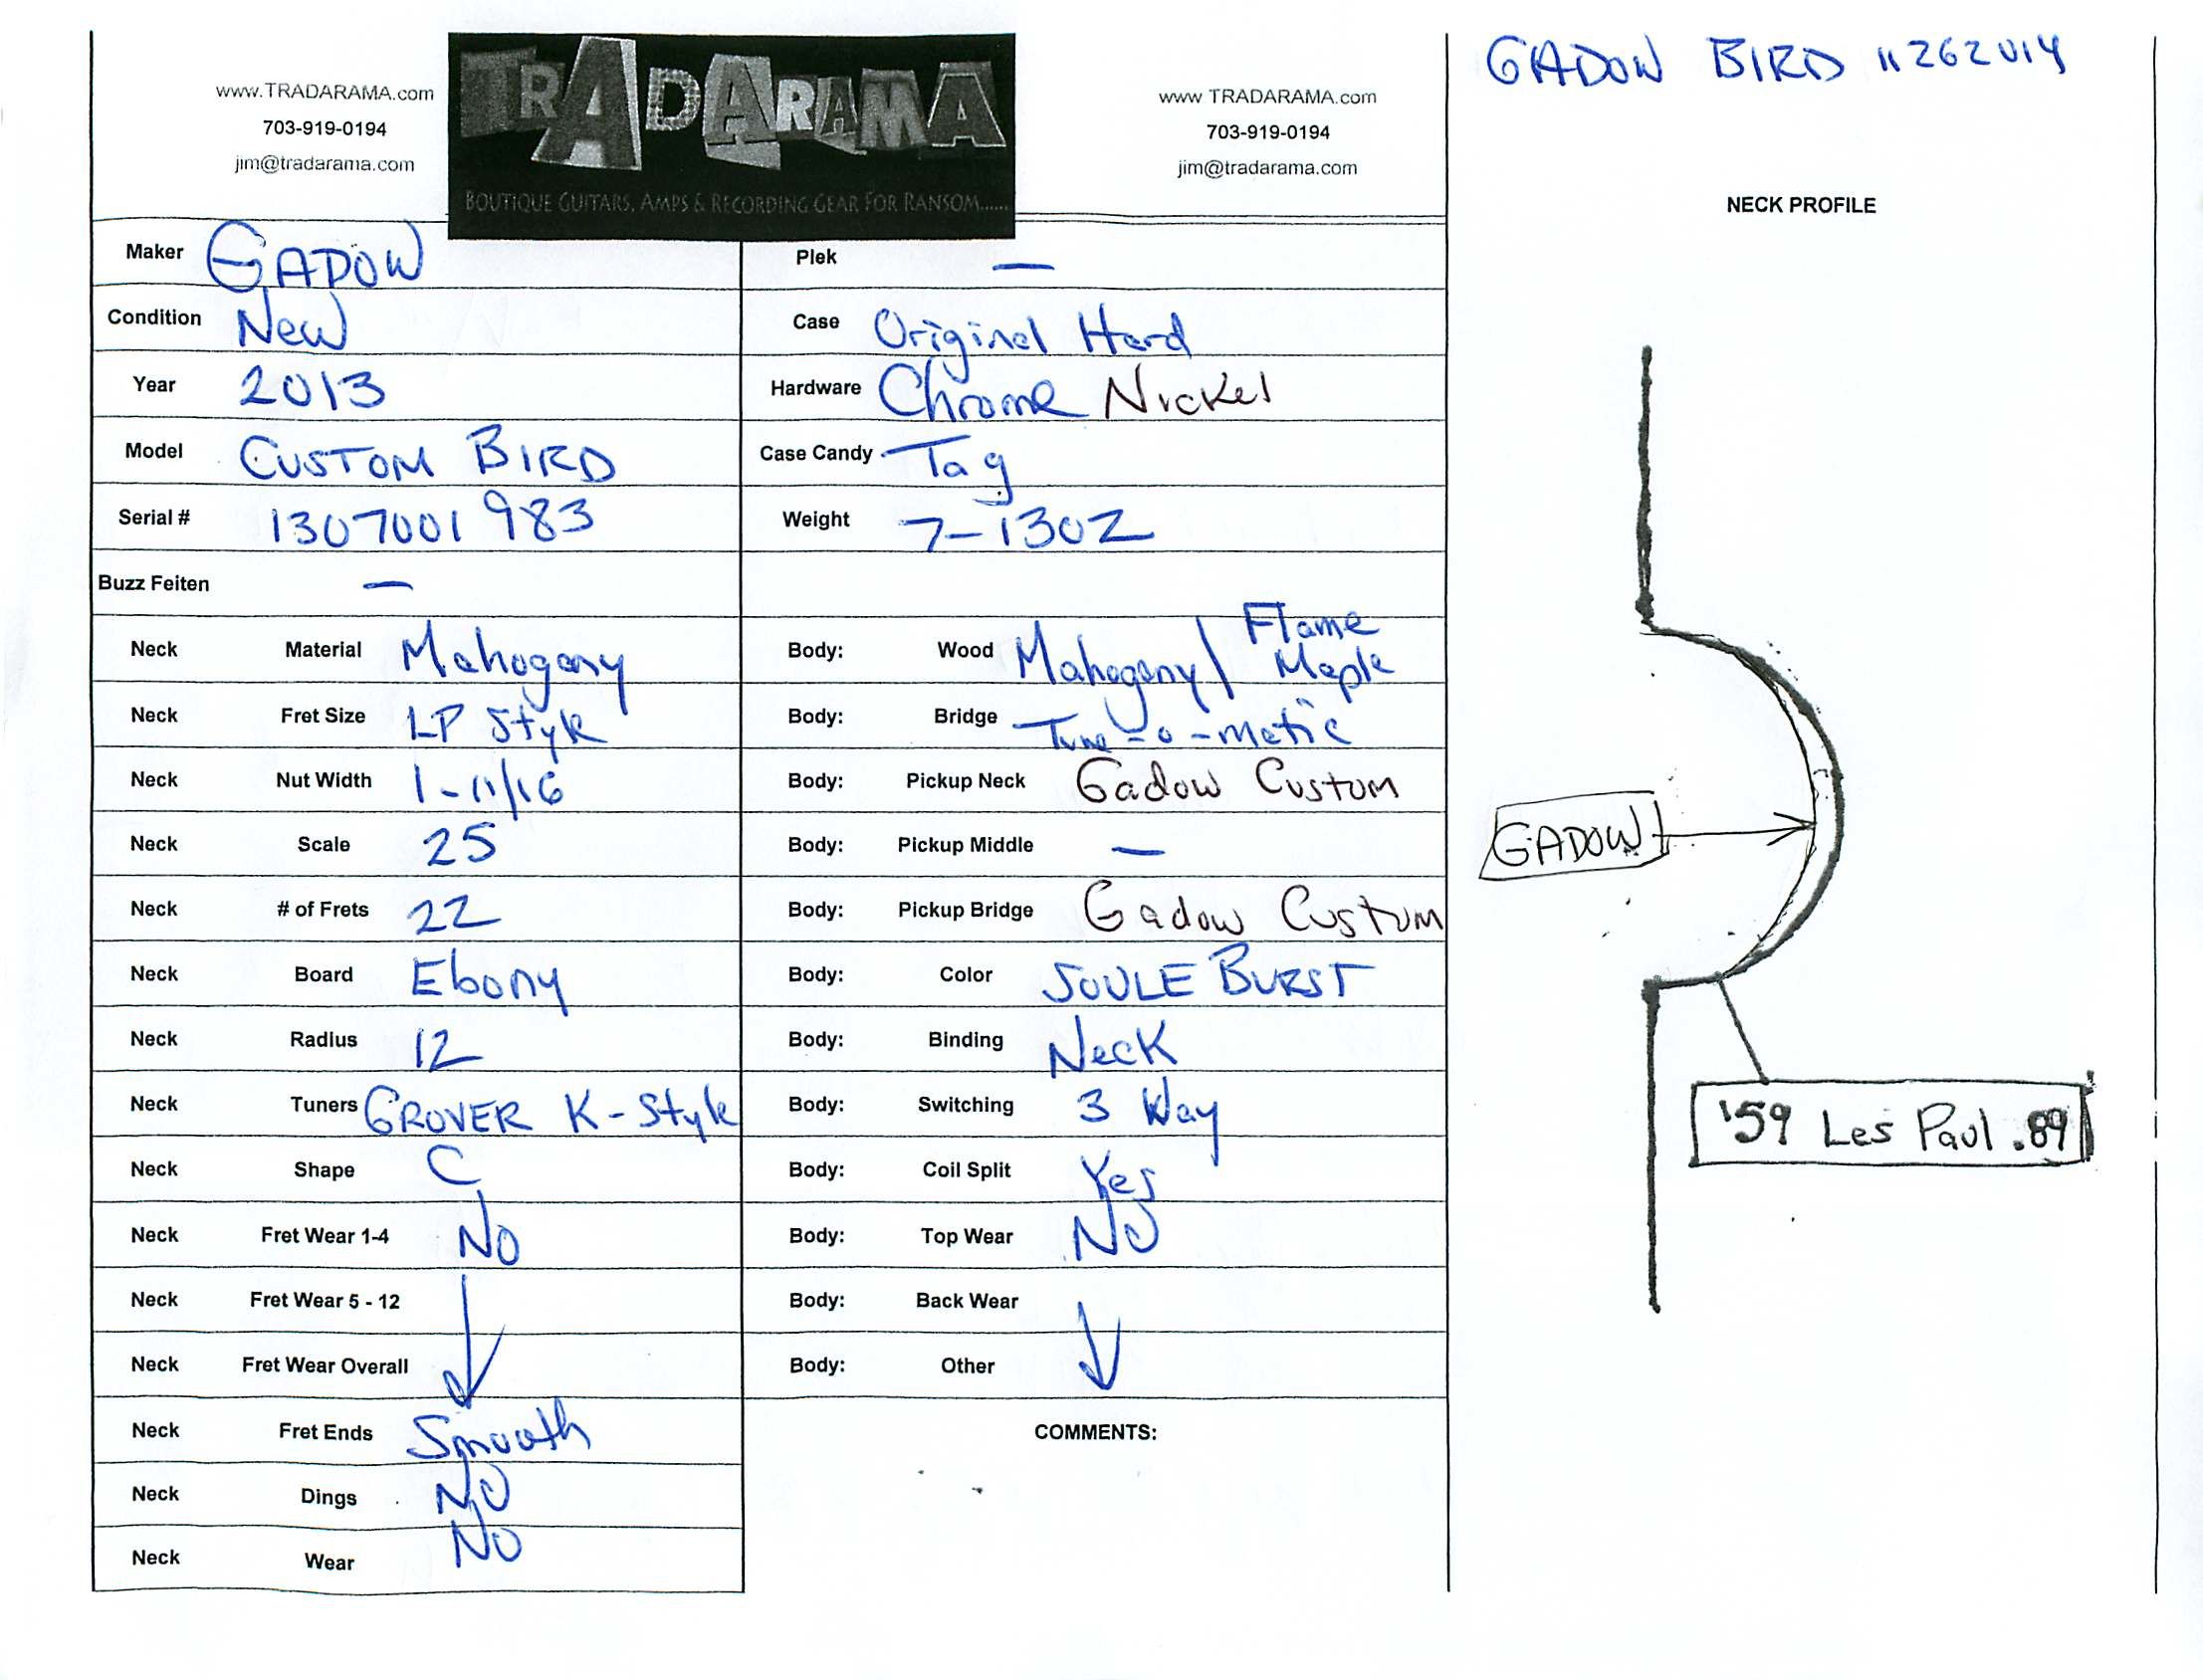 www.TRADARAMA.com
703-919-0194
jim@tradarama.com
TRADARAMA
BOUTIQUE GUITARS, AMPS & RECORDING GEAR FOR RANSOM......
www TRADARAMA.com
703-919-0194
jim@tradarama.com
GADOW BIRD 11262014
NECK PROFILE
Maker GADOW
Plek —
Condition New
Case Original Hard
Year 2013
Hardware Chrome Nickel
Model CUSTOM BIRD
Case Candy Tag
Serial # 1307001983
Weight 7-13OZ
Buzz Feiten —
Neck Material Mahogany
Body: Wood Mahogany/ Flame Maple
Neck Fret Size LP Style
Body: Bridge Tune-o-matic
Neck Nut Width 1-11/16
Body: Pickup Neck Gadow Custom
Neck Scale 25
Body: Pickup Middle —
Neck # of Frets 22
Body: Pickup Bridge Gadow Custom
Neck Board Ebony
Body: Color JOULE BURST
Neck Radius 12
Body: Binding Neck
Neck Tuners GROVER K-Style
Body: Switching 3 Way
Neck Shape C
Body: Coil Split Yes
Neck Fret Wear 1-4 No
Body: Top Wear NO
Neck Fret Wear 5 - 12
Body: Back Wear
Neck Fret Wear Overall
Body: Other
Neck Fret Ends Smooth
COMMENTS:
Neck Dings NO
Neck Wear NO
GADOW
'59 Les Paul .89